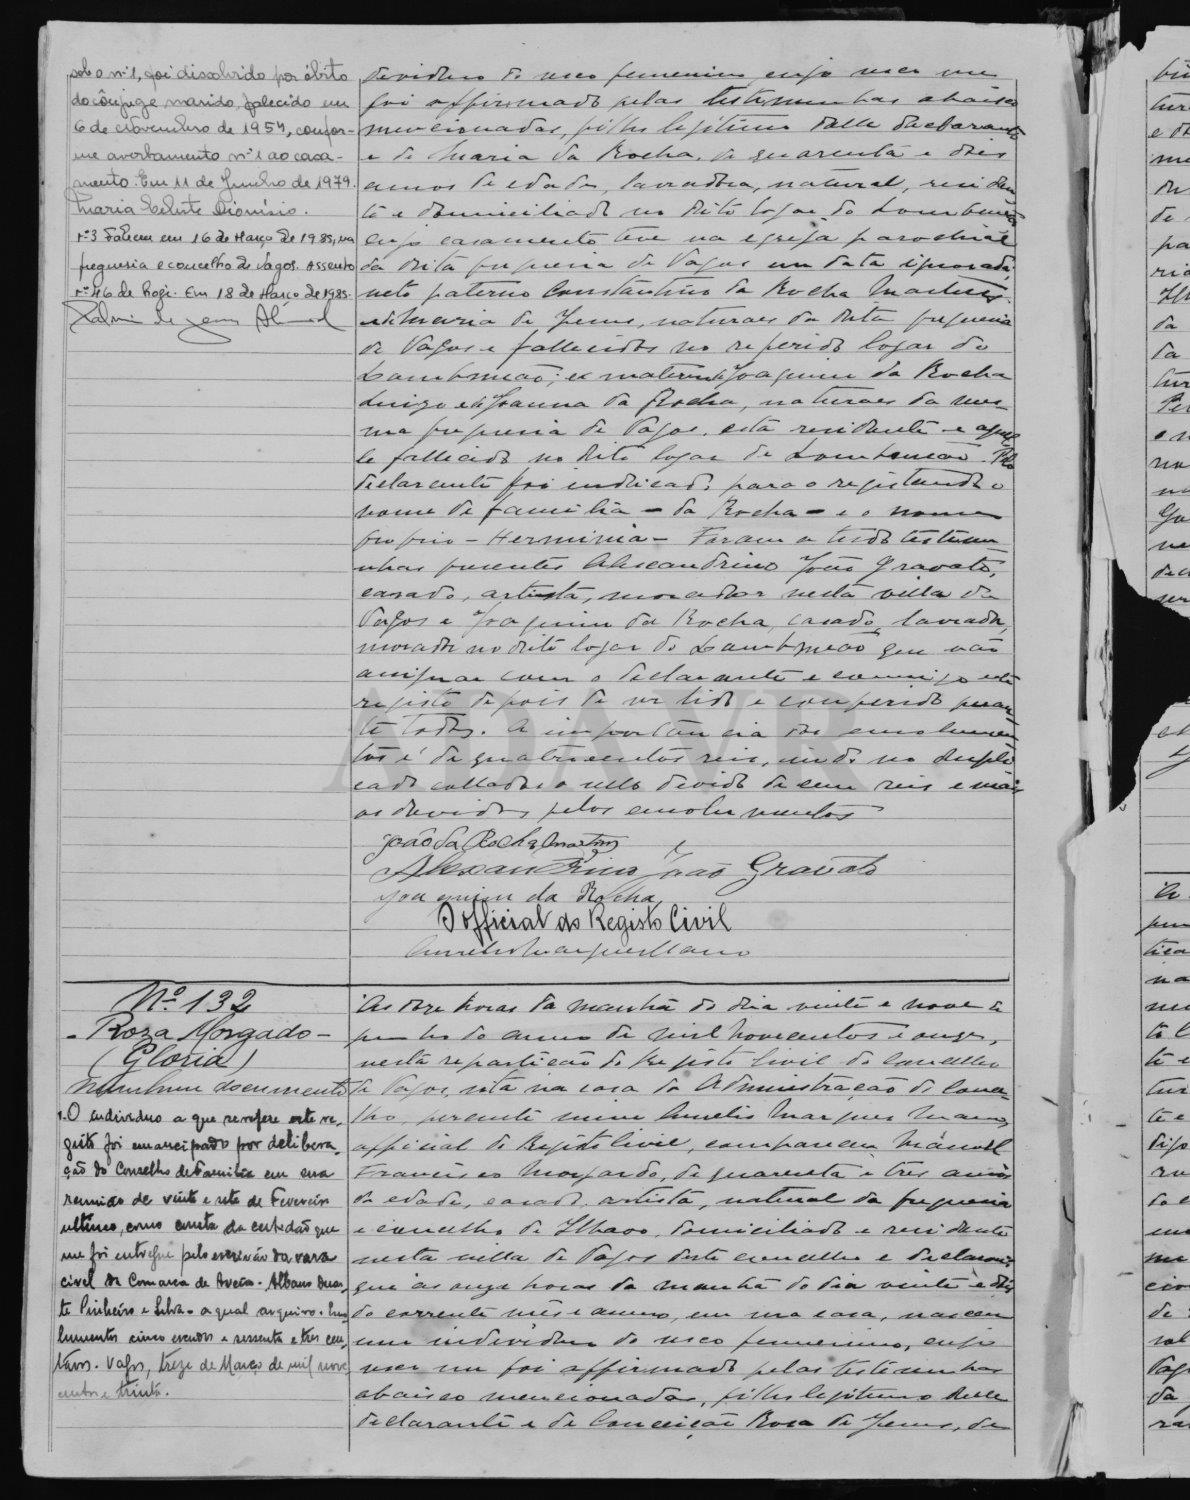 sob o nº 1, foi dissolvido por óbito
do cônjuge marido, falecido em
6 de Novembro de 1954, confor-
me averbamento nº 1 ao casa-
mento. Em 11 de Junho de 1979.
Maria Celeste Dionísio.
nº 3 Faleceu em 16 de Março de 1985, na
freguesia e concelho de Vagos. Assento
nº 46 de hoje. Em 18 de Março de 1985.
dividuo do sexo femenino cujo sexo me
foi affirmado pelas testemunhas abaixo
mencionadas, filho legitimo delle declarante
e de Maria da Rocha, de quarenta e dois
annos de edade, lavradora, natural, residen
te e domiciliada no dito logar do Lombomeão
cujo casamento teve na egreja parochial
da dita freguesia de Vagos em data ignorada,
neto paterno Constantino da Rocha Martins
e de Maria de Jesus, naturaes da dita freguesia
de Vagos e fallecidos no referido logar do
Lombomeão; e materno de Joaquim da Rocha
e de Joanna da Rocha, naturaes da mes-
ma freguesia de Vagos, esta residente e aquel
le fallecido no dito logar de Lombomeão. Pelo
declarante foi indicado para o registando o
nome de familia - da Rocha - e o nome
proprio - Herminia - Foram a tudo testemu
nhas presentes Alexandrino João Gravato,
casado, artista, morador nesta villa de
Vagos e Joaquim da Rocha, casado, lavrador,
morador no dito logar do Lombomeão que vão
assignar com o declarante e commigo este
registo depois de ser lido e conferido peran
te todos. A importancia dos emolumen
tos é de quatrocentos reis, indo no dupli
cado collado o sello devido de cem reis e mais
os devidos pelos emolumentos
João da Rocha Martins
Alexandrino João Gravato
Joaquim da Rocha
O official do Registo Civil
Nº 132
- Roza Morgado -
(Gloria)
Nenhum documento
1. O individuo a que se refere este re-
gisto foi emancipado por delibera-
ção do Conselho de Familia em sua
reunião de vinte e sete de Fevereiro
ultimo, como consta da certidão que
me foi entregue pelo escrivão da vara
civel da Comarca de Aveiro - Albano Duar-
te Pinheiro e Silva - a qual arquivo. Emo-
lumentos cinco escudos e sessenta e tres cen-
tavos. Vagos, treze de Março de mil nove
centos e trinta.
As doze horas da manhã do dia vinte e nove de
junho do anno de mil novecentos e onze,
nesta repartição do Registo Civil do Concelho
de Vagos, sita na casa da Administração do Conce-
lho, perante mim Aurelio Marques Mano,
official do Registo Civil, compareceu Manoel
Francisco Morgado, de quarenta e três annos
de edade, casado, artista, natural da freguesia
e concelho de Ilhavo, domiciliado e residente
nesta villa de Vagos deste concelho e declarou
que ás onze horas da manhã do dia vinte e dois
do corrente mês e anno, em sua casa, nasceu
um individuo do sexo femenino, cujo
sexo me foi affirmado pelas testemunhas
abaixo mencionadas, filho legitimo delle
declarante e de Conceição Rosa de Jesus, de
ADAVR